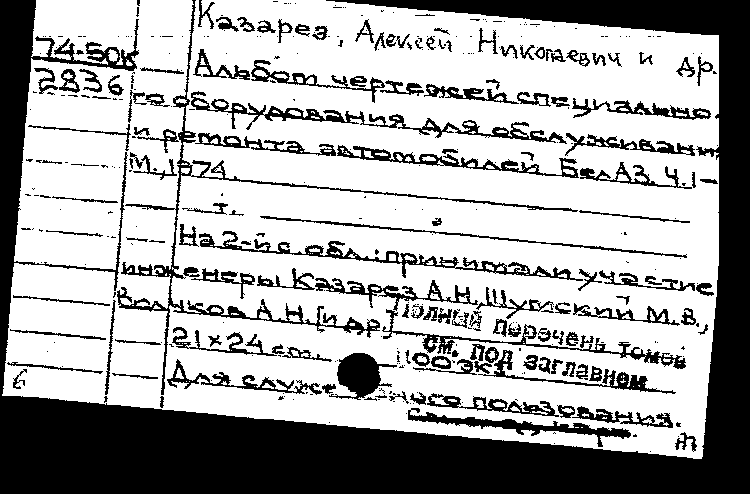 Казарез, Алексей Николаевич и др.
74-50К
2836
Альбом чертежей специально-
го оборудования для обслуживания
и ремонта автомобилей БелАЗ. Ч.1-
М., 1974.
т.
На 2-й с. обл.: принимали участие
инженеры Казарез А.Н., Шумский М.В.,
Волчков А.Н. [и др]
Полный перечень томов
см. под заглавием
21×24 см. 1100 экз
Для служебного пользования.
6